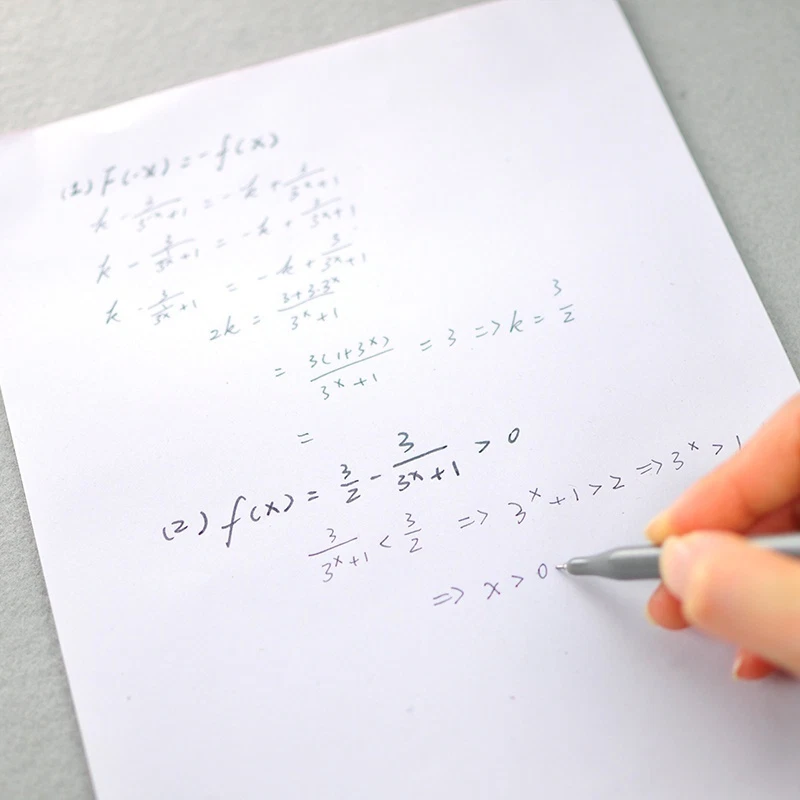 (1) F(-x) = -f(x)
k - 3/(3^-x+1) = -k + 3/(3^x+1)
k - 3/(3^x+1) = -k + 3/(3^x+1)
k - 3/(3^x+1) = -k + 3/(3^x+1)
2k = (3+3·3^x)/(3^x+1)
= 3(1+3^x)/(3^x+1) = 3 => k = 3/2
=
(2) f(x) = 3/2 - 3/(3^x+1) > 0
3/(3^x+1) < 3/2 => 3^x+1 > 2 => 3^x > 1
=> x > 0